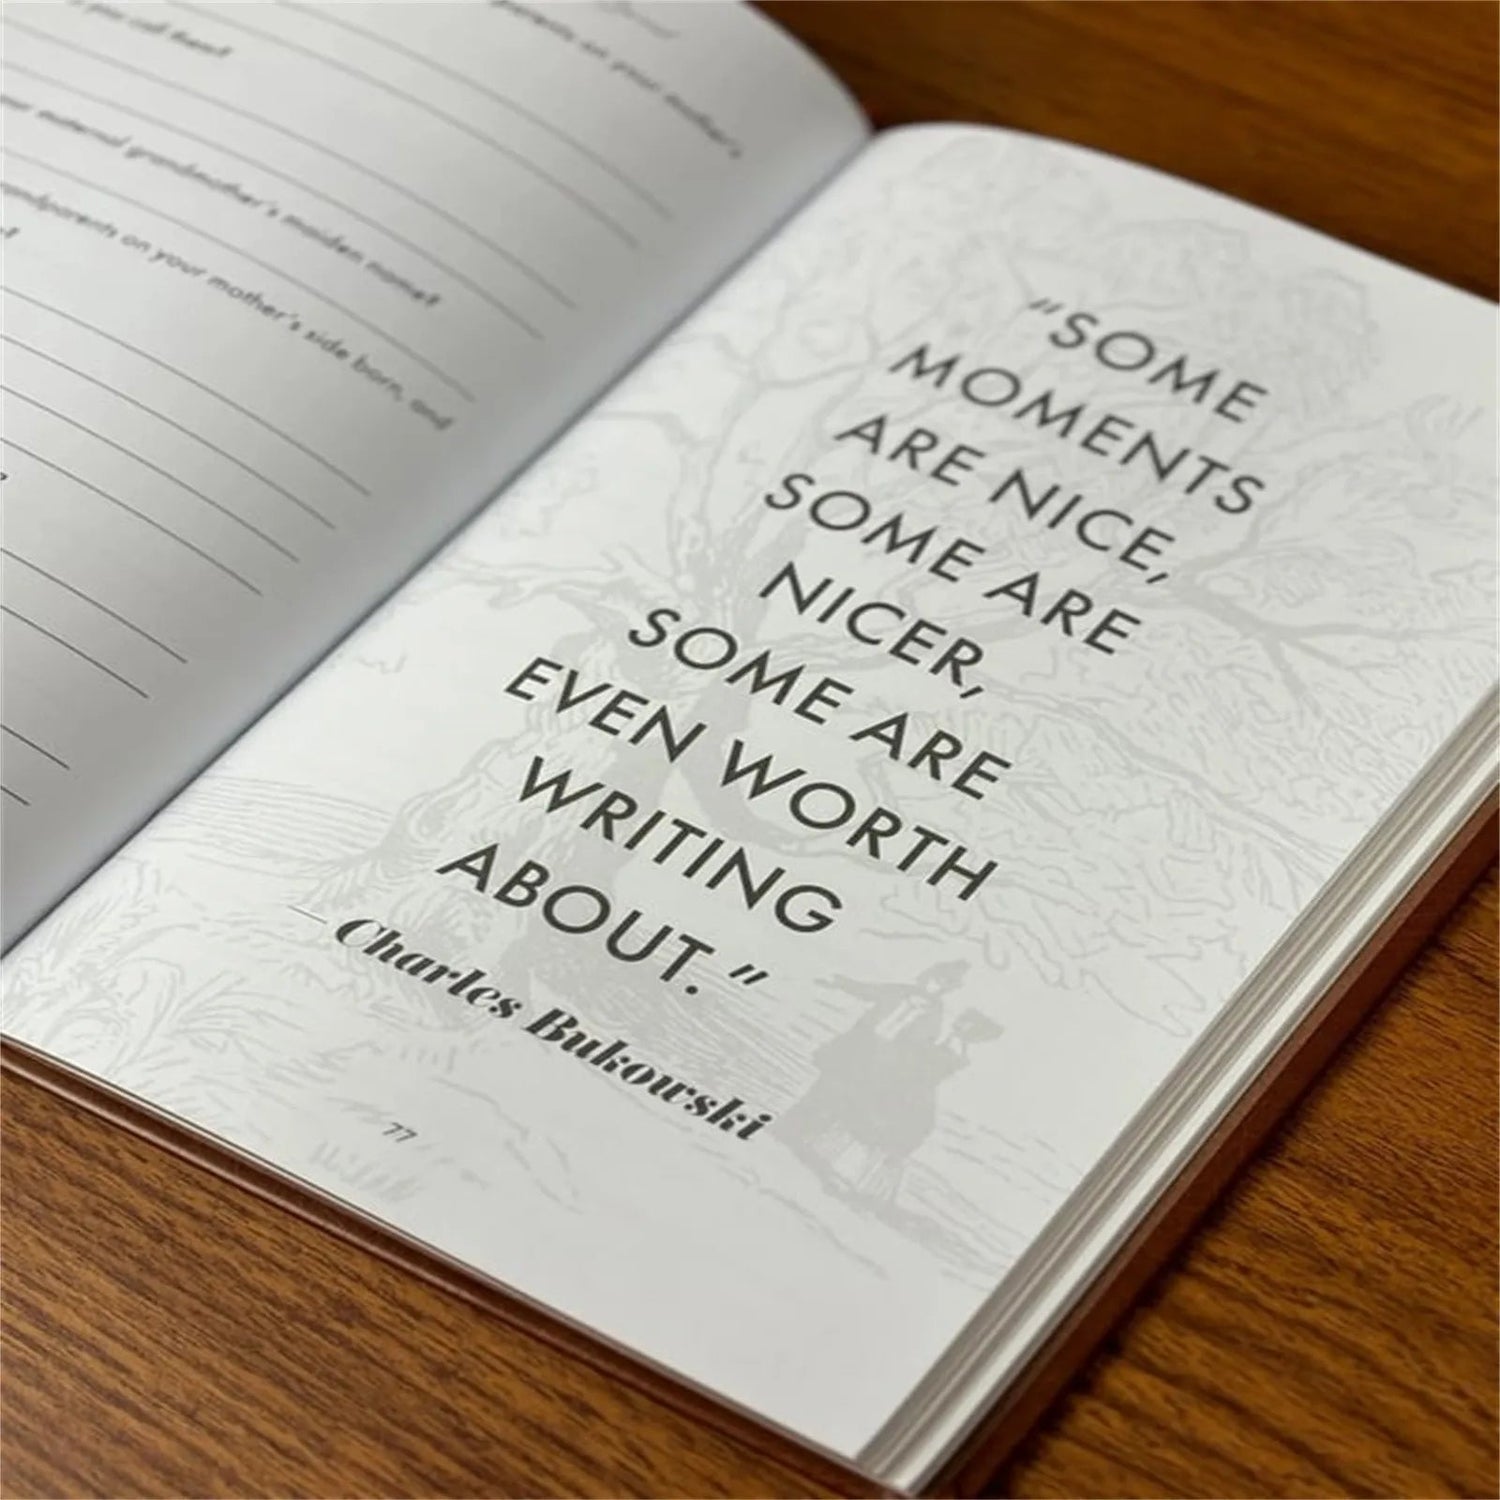 parents on your mother's
you call them?
maternal grandmother's maiden name?
grandparents on your mother's side born, and
"SOME
MOMENTS
ARE NICE,
SOME ARE
NICER,
SOME ARE
EVEN WORTH
WRITING
ABOUT."
— Charles Bukowski
77